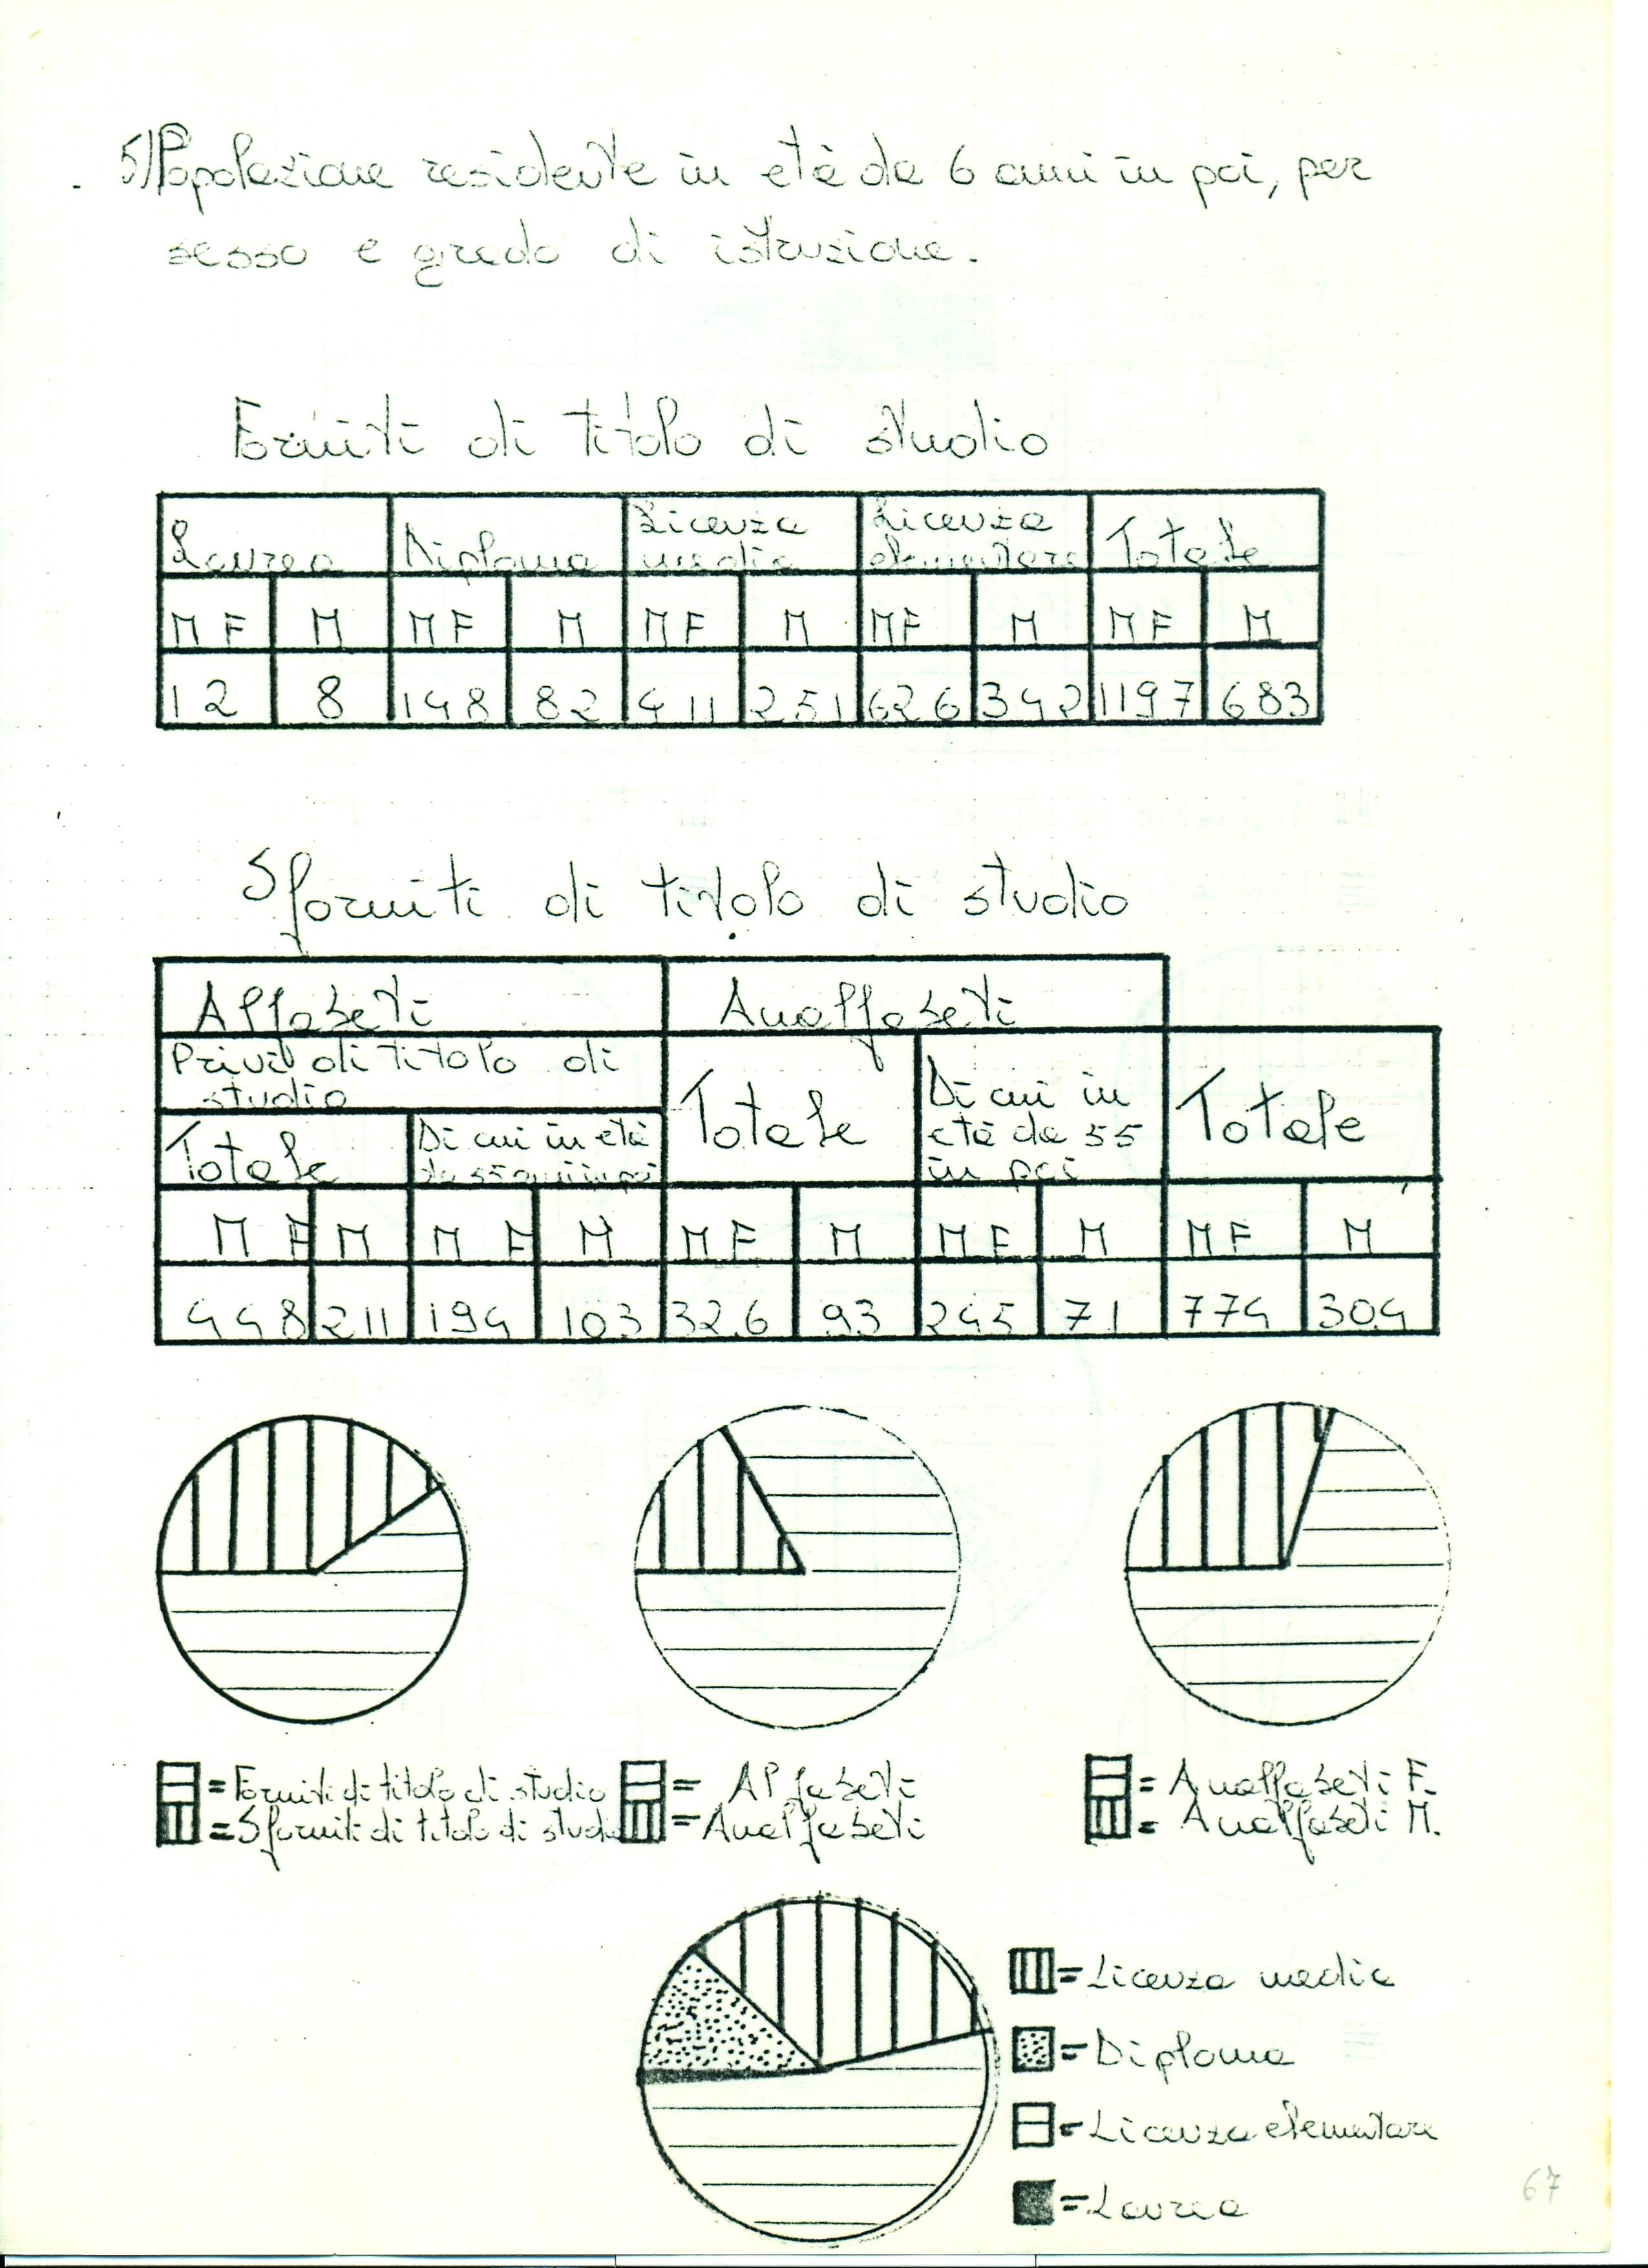 5) Popolazione residente in età da 6 anni in poi, per
sesso e grado di istruzione.
Forniti di titolo di studio
Laurea Diploma Licenza media Licenza elementare Totale
MF M MF M MF M MF M MF M
12 8 148 82 411 251 626 342 1197 683
Sforniti di titolo di studio
Alfabeti Analfabeti
Privi di titolo di studio Totale Di cui in età da 55 in poi Totale
Totale Di cui in età da 55 anni in poi
MF M MF M MF M MF M MF M
448 211 194 103 326 93 245 71 774 304
= Forniti di titolo di studio
= Sforniti di titolo di studio
= Alfabeti
= Analfabeti
= Analfabeti F.
= Analfabeti M.
= Licenza media
= Diploma
= Licenza elementare
= Laurea
67